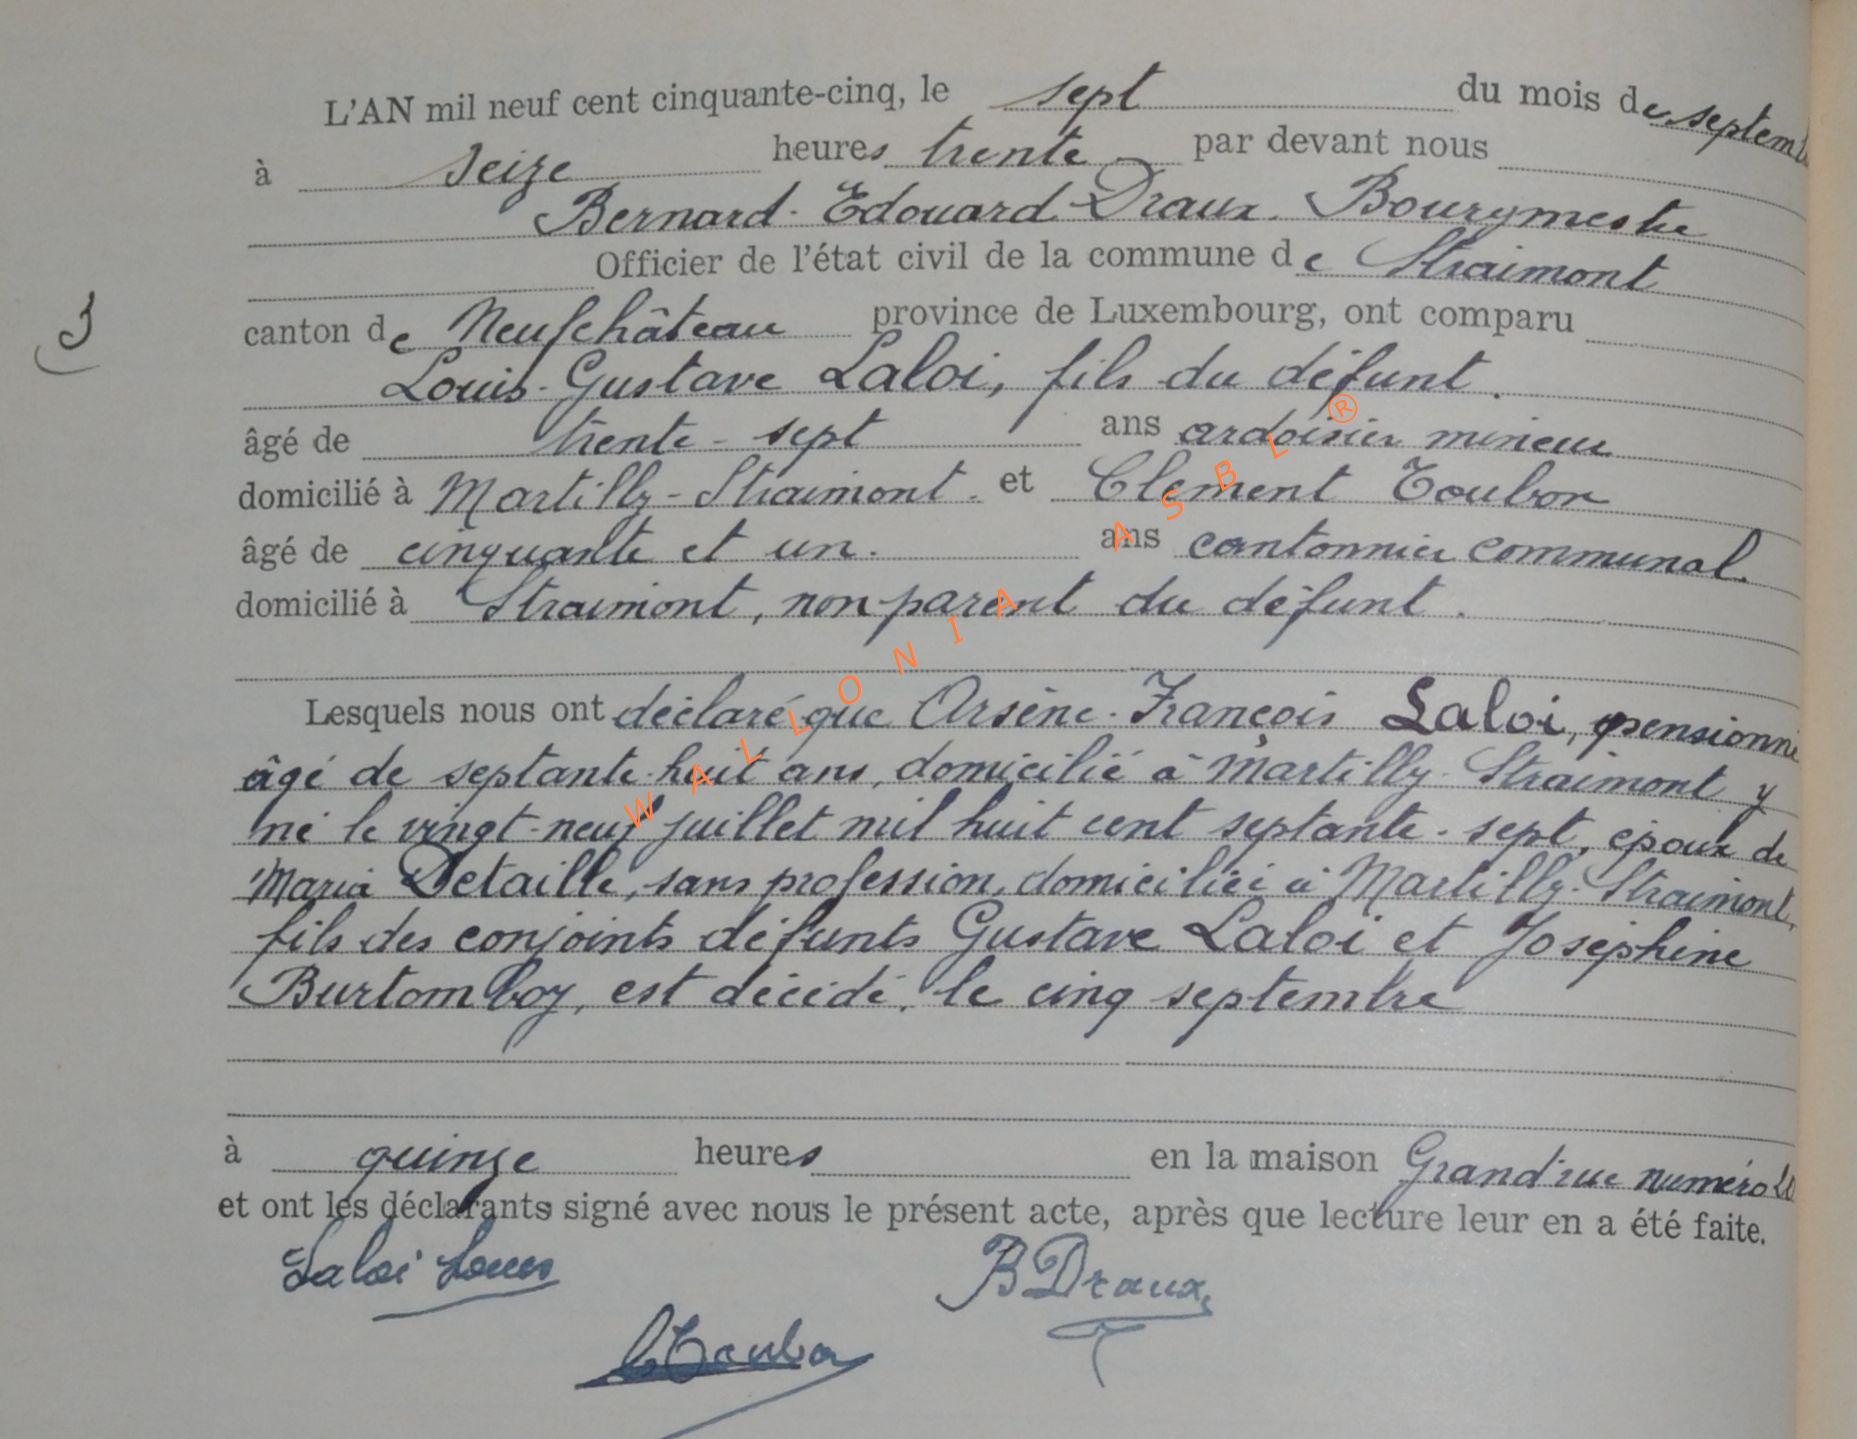 L'AN mil neuf cent cinquante-cinq, le sept du mois de septemb
à seize heures trente par devant nous
Bernard-Edouard Draux. Bourgmestre
Officier de l'état civil de la commune de Straimont
canton de Neufchâteau province de Luxembourg, ont comparu
Louis-Gustave Laloi, fils du défunt.
âgé de trente-sept ans ardoisier mineur
domicilié à Martilly-Straimont. et Clément Toubon
âgé de cinquante et un. ans cantonnier communal.
domicilié à Straimont, non parent du défunt.
3
Lesquels nous ont déclaré que Arsène-François Laloi, pensionné
âgé de septante-huit ans, domicilié à Martilly-Straimont y
né le vingt-neuf juillet mil huit cent septante-sept, époux de
Maria Detaille, sans profession, domiciliée à Martilly-Straimont,
fils des conjoints défunts Gustave Laloi et Joséphine
Burtomboy, est décédé, le cinq septembre
à quinze heures en la maison Grand'rue numéro
et ont les déclarants signé avec nous le présent acte, après que lecture leur en a été faite.
Laloi Louis
B Draux
C Toubon
WALLONIA ASBL ®